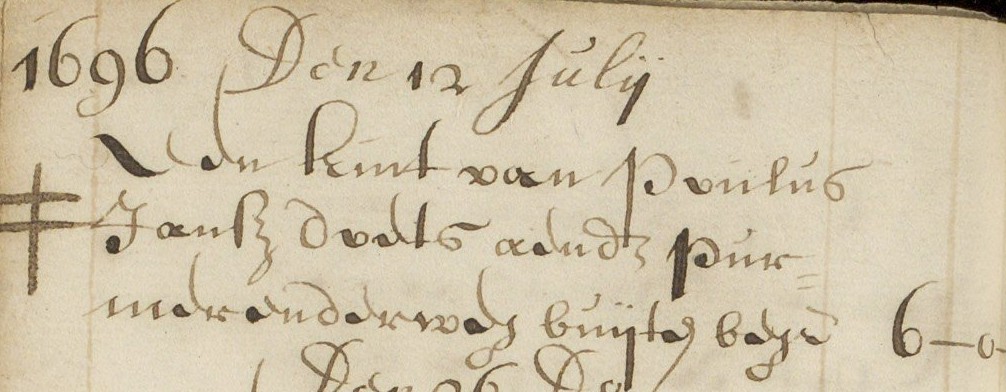 1696 Den 12 Julij
Een kint van Poulus
Jansz doots aendz Pur=
merenderweg buijten begr 6-0-
Den 26 Do